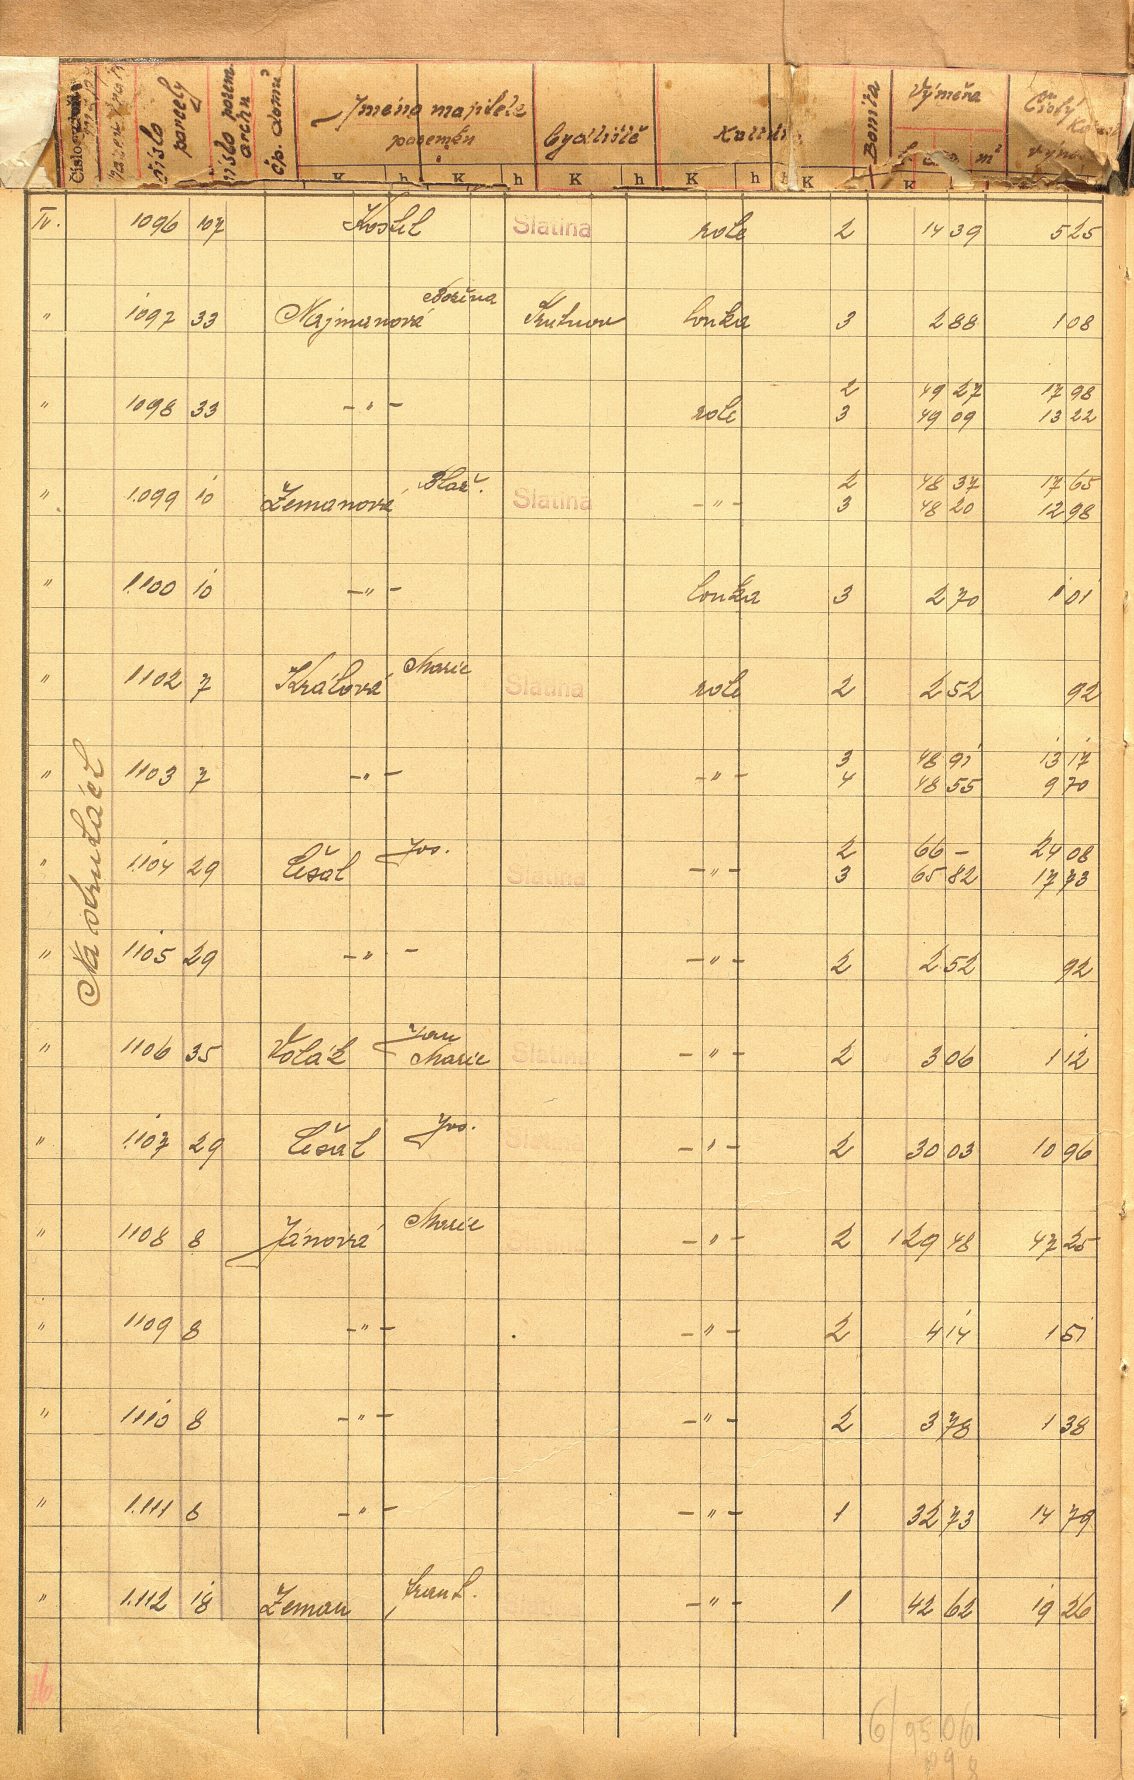 číslo parcely číslo pozem. archu čp. domu Jméno majitele pozemku bydliště Bonita Výměra m² Čistý
K h K h K h K h K K
IV. 1096 107 Kostel Slatina role 2 14 39 5 25
" 1097 33 Najmanová Božena Trutnov louka 3 2 88 1 08
" 1098 33 - " - role 2 49 27 17 98
3 49 09 13 22
" 1099 10 Zemanová Slatina - " - 2 48 37 17 65
3 48 20 12 98
" 1100 10 - " - louka 3 2 70 1 01
" 1102 7 Králová Marie Slatina role 2 2 52 92
" 1103 7 - " - - " - 3 48 91 13 17
4 48 55 9 70
" 1104 29 Jos. Slatina - " - 2 66 - 24 08
3 65 82 17 73
" 1105 29 - " - - " - 2 2 52 92
" 1106 35 Volák Jan Marie Slatina - " - 2 3 06 1 12
" 1107 29 Jos. - " - 2 30 03 10 96
" 1108 8 Jánová Marie - " - 2 129 48 47 25
" 1109 8 - " - - " - 2 4 14 1 51
" 1110 8 - " - - " - 2 3 78 1 38
" 1111 8 - " - - " - 1 32 73 14 79
" 1112 18 Zeman Frant. - " - 1 42 62 19 26
16
6/ 95 06